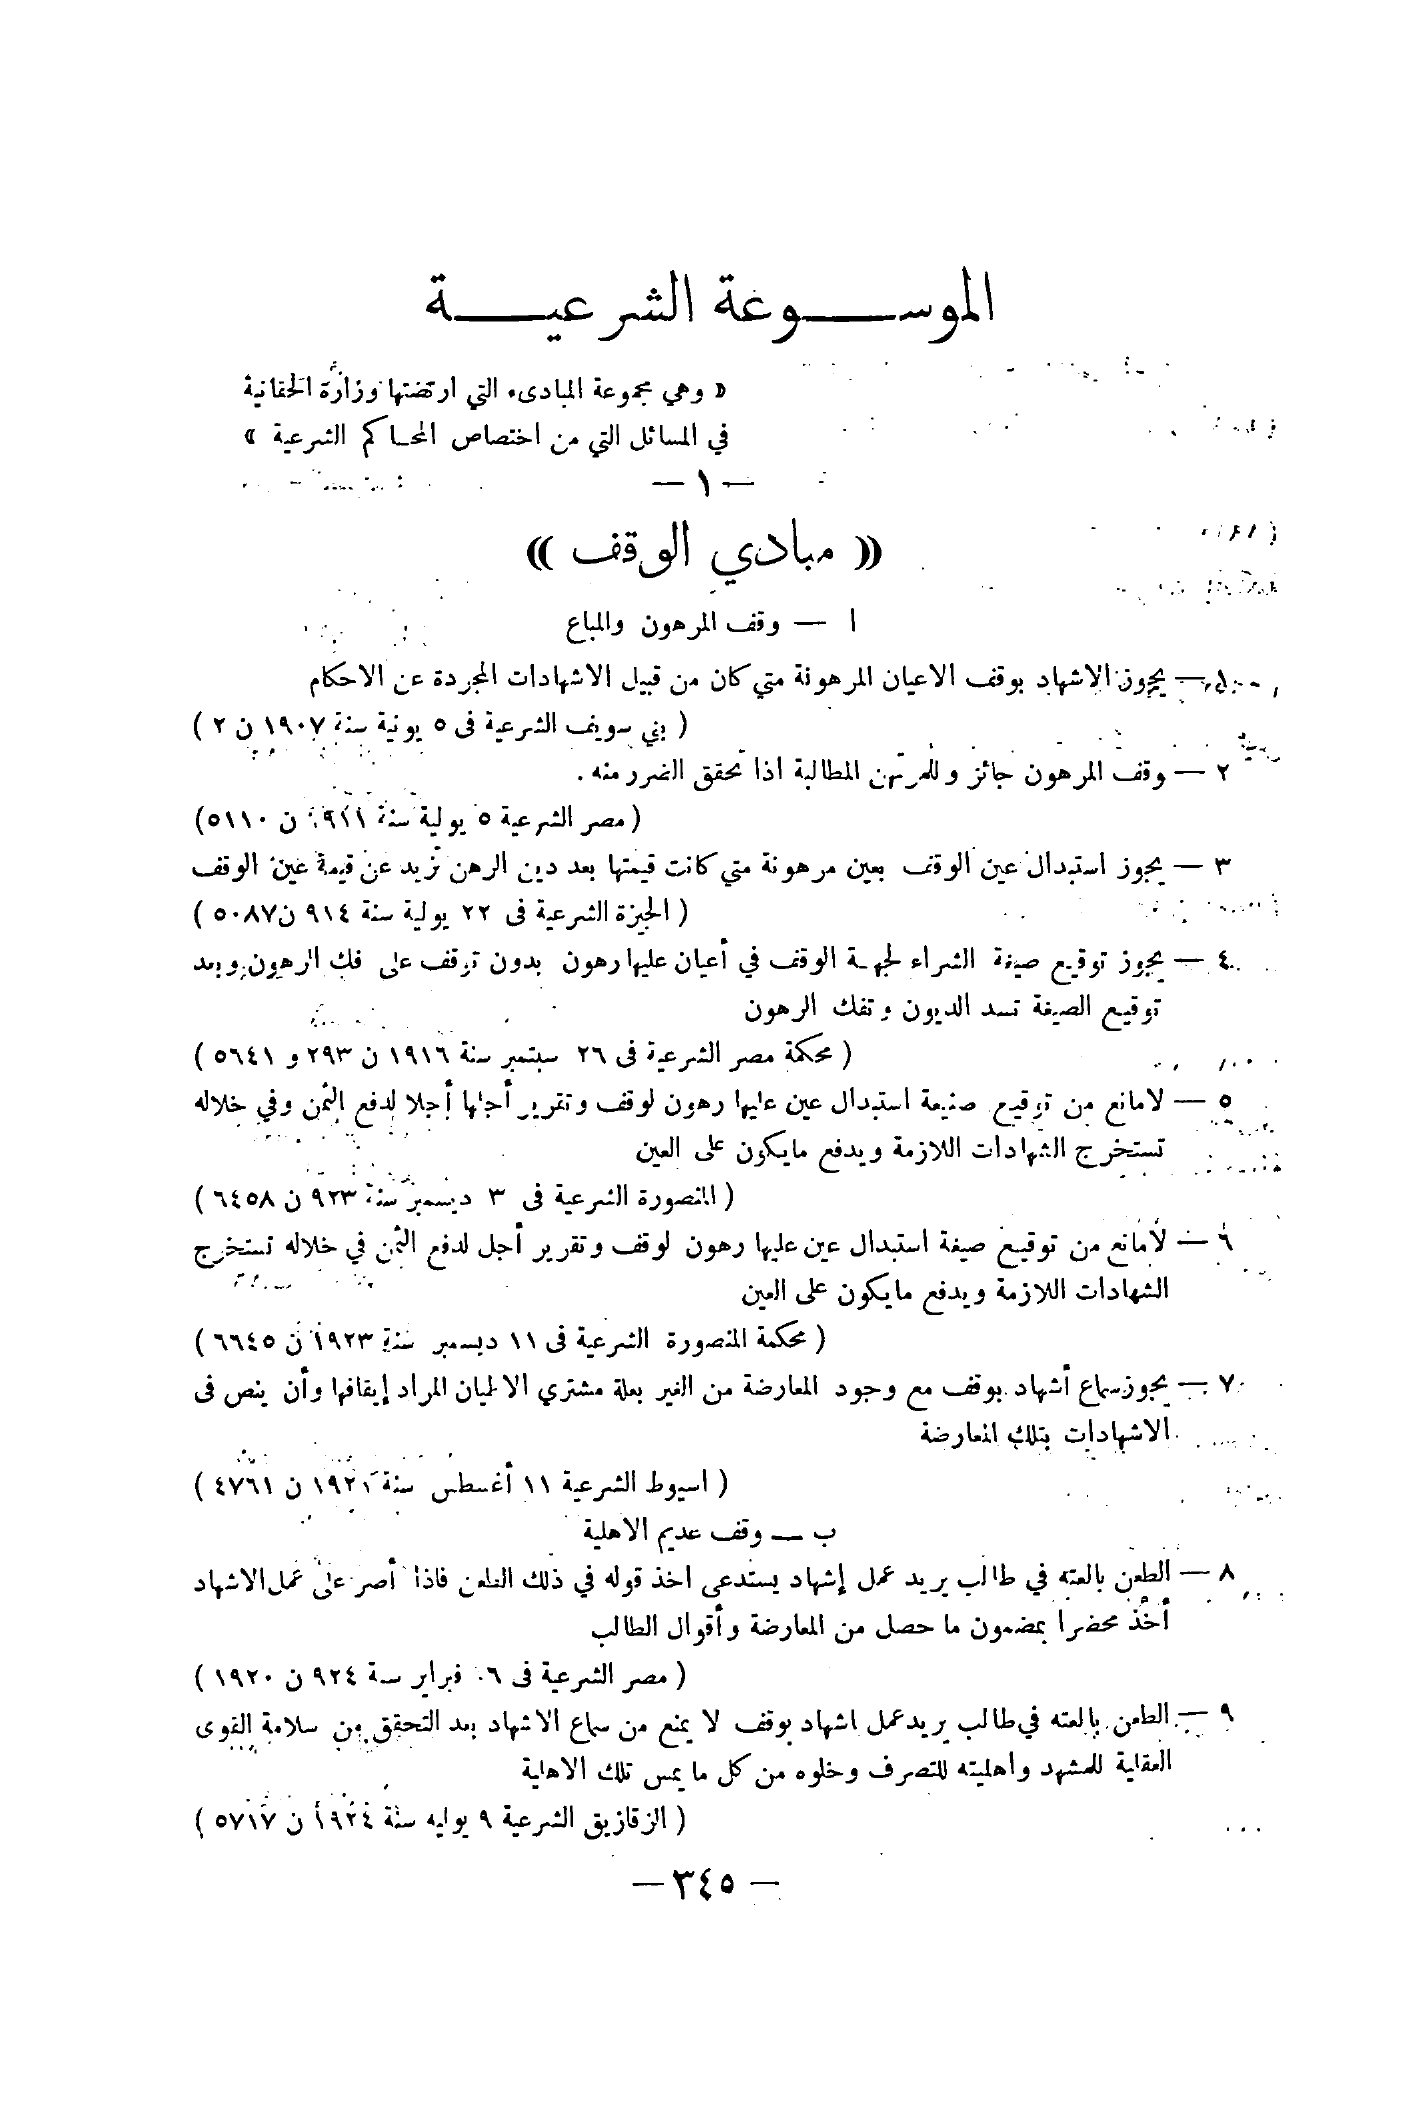 الموسوعة الشرعية
« وهي مجموعة المبادىء التي ارتضتها وزارة الحقانية
في المسائل التي من اختصاص المحاكم الشرعية »
— ١ —
« مبادي الوقف »
ا — وقف المرهون والمباع
١ — يجوز الاشهاد بوقف الاعيان المرهونة متي كان من قبيل الاشهادات المجردة عن الاحكام
( بني سويف الشرعية فى ٥ يونية سنة ١٩٠٧ ن ٢ )
٢ — وقف المرهون جائز وللمرتهن المطالبة اذا تحقق الضرر منه .
( مصر الشرعية ٥ يولية سنة ١٩١١ ن ٥١١٠)
٣ — يجوز استبدال عين الوقف بعين مرهونة متي كانت قيمتها بعد دين الرهن تزيد عن قيمة عين الوقف
( الجيزة الشرعية فى ٢٢ يولية سنة ٩١٤ ن ٥٠٨٧ )
٤ — يجوز توقيع صيغة الشراء لجهة الوقف في أعيان عليها رهون بدون توقف على فك الرهون وبعد
توقيع الصيغة تسد الديون وتفك الرهون
( محكمة مصر الشرعية فى ٢٦ سبتمبر سنة ١٩١٦ ن ٢٩٣ و ٥٦٤١ )
٥ — لامانع من توقيع صيغة استبدال عين عليها رهون لوقف وتقرير أجلها أجلا لدفع الثمن وفي خلاله
تستخرج الشهادات اللازمة ويدفع مايكون على العين
( المنصورة الشرعية فى ٣ ديسمبر سنة ٩٢٣ ن ٦٤٥٨ )
٦ — لامانع من توقيع صيغة استبدال عين عليها رهون لوقف وتقرير أجل لدفع الثمن في خلاله تستخرج
الشهادات اللازمة ويدفع مايكون على العين
( محكمة المنصورة الشرعية فى ١١ ديسمبر سنة ١٩٢٣ ن ٦٦٤٥ )
٧ — يجوز سماع أشهاد بوقف مع وجود المعارضة من الغير بعلة مشتري الاعيان المراد إيقافها وأن ينص فى
الاشهادات بتلك المعارضة
( اسيوط الشرعية ١١ أغسطس سنة ن ٤٧٦١ )
ب — وقف عديم الاهلية
٨ — الطعن بالعته في طالب يريد عمل إشهاد يستدعى اخذ قوله في ذلك الطعن فاذا أصر على عمل الاشهاد
أخذ محضرا بمضمون ما حصل من المعارضة وأقوال الطالب
( مصر الشرعية فى ٦ فبراير سنة ٩٢٤ ن ١٩٢٠ )
٩ — الطعن بالعته في طالب يريد عمل اشهاد بوقف لا يمنع من سماع الاشهاد بعد التحقق من سلامة القوى
العقلية للمشهد واهليته للتصرف وخلوه من كل ما يمس تلك الاهلية
( الزقازيق الشرعية ٩ يوليه سنة ١٩٢٤ ن ٥٧١٧ )
— ٣٤٥ —